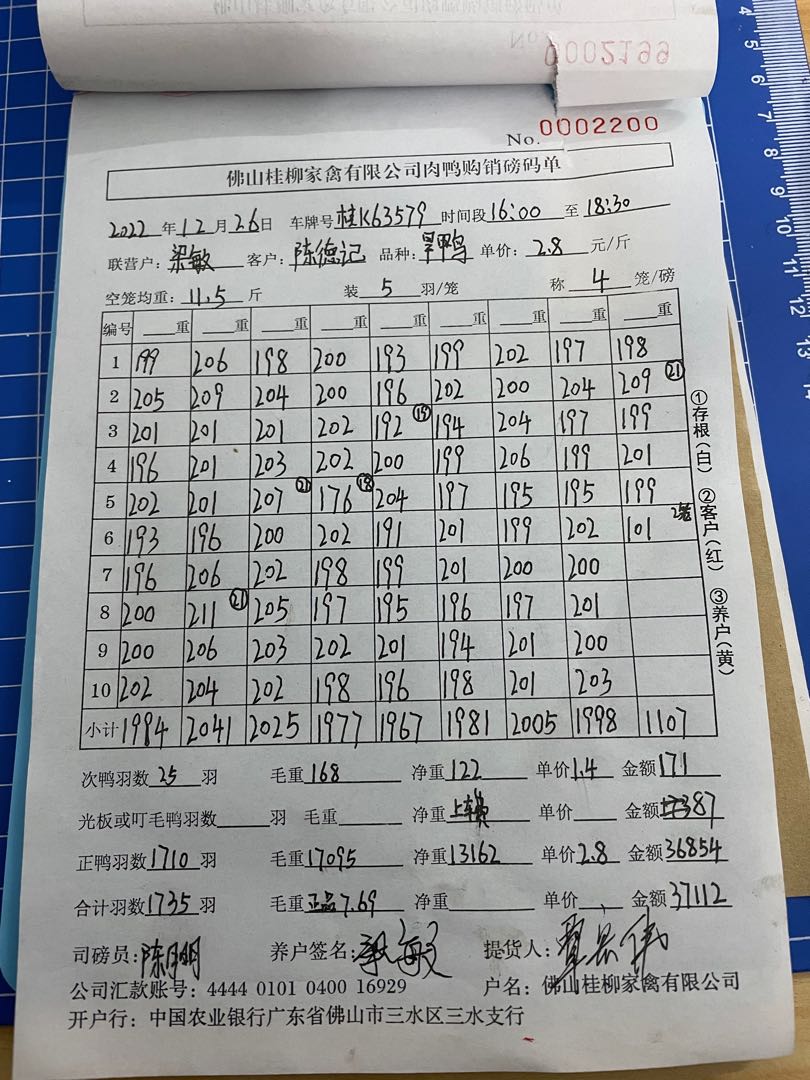 0002199
No. 0002200
佛山桂柳家禽有限公司肉鸭购销磅码单
2022年12月26日 车牌号桂K63579 时间段16:00至18:30
联营户：梁敏 客户：陈德记 品种：旱鸭 单价：2.8元/斤
空笼均重：11.5斤 装5羽/笼 称4笼/磅
编号 重 重 重 重 重 重 重 重 重
1 199 206 198 200 193 199 202 197 198
2 205 209 204 200 196 202 200 204 209 ㉑
3 201 201 201 202 192 ⑮ 194 204 197 199
4 196 201 203 202 200 199 206 199 201
5 202 201 207 ㉑ 176 ⑱ 204 197 195 195 199
6 193 196 200 202 191 201 199 202 101 2笼
7 196 206 202 198 199 201 200 200
8 200 211 ㉑ 205 197 195 196 197 201
9 200 206 203 202 201 194 201 200
10 202 204 202 198 196 198 201 203
小计 1994 2041 2025 1977 1967 1981 2005 1998 1107
次鸭羽数25羽 毛重168 净重122 单价1.4 金额171
光板或叮毛鸭羽数 羽 毛重 净重上车费 单价 金额387
正鸭羽数1710羽 毛重17095 净重13162 单价2.8 金额36854
合计羽数1735羽 毛重正品7.69 净重 单价 金额37112
司磅员：陈明 养户签名：梁敏 提货人：
公司汇款账号：4444 0101 0400 16929 户名：佛山桂柳家禽有限公司
开户行：中国农业银行广东省佛山市三水区三水支行
①存根（白） ②客户（红） ③养户（黄）
4
5
6
7
8
9
10
11
12
13
14